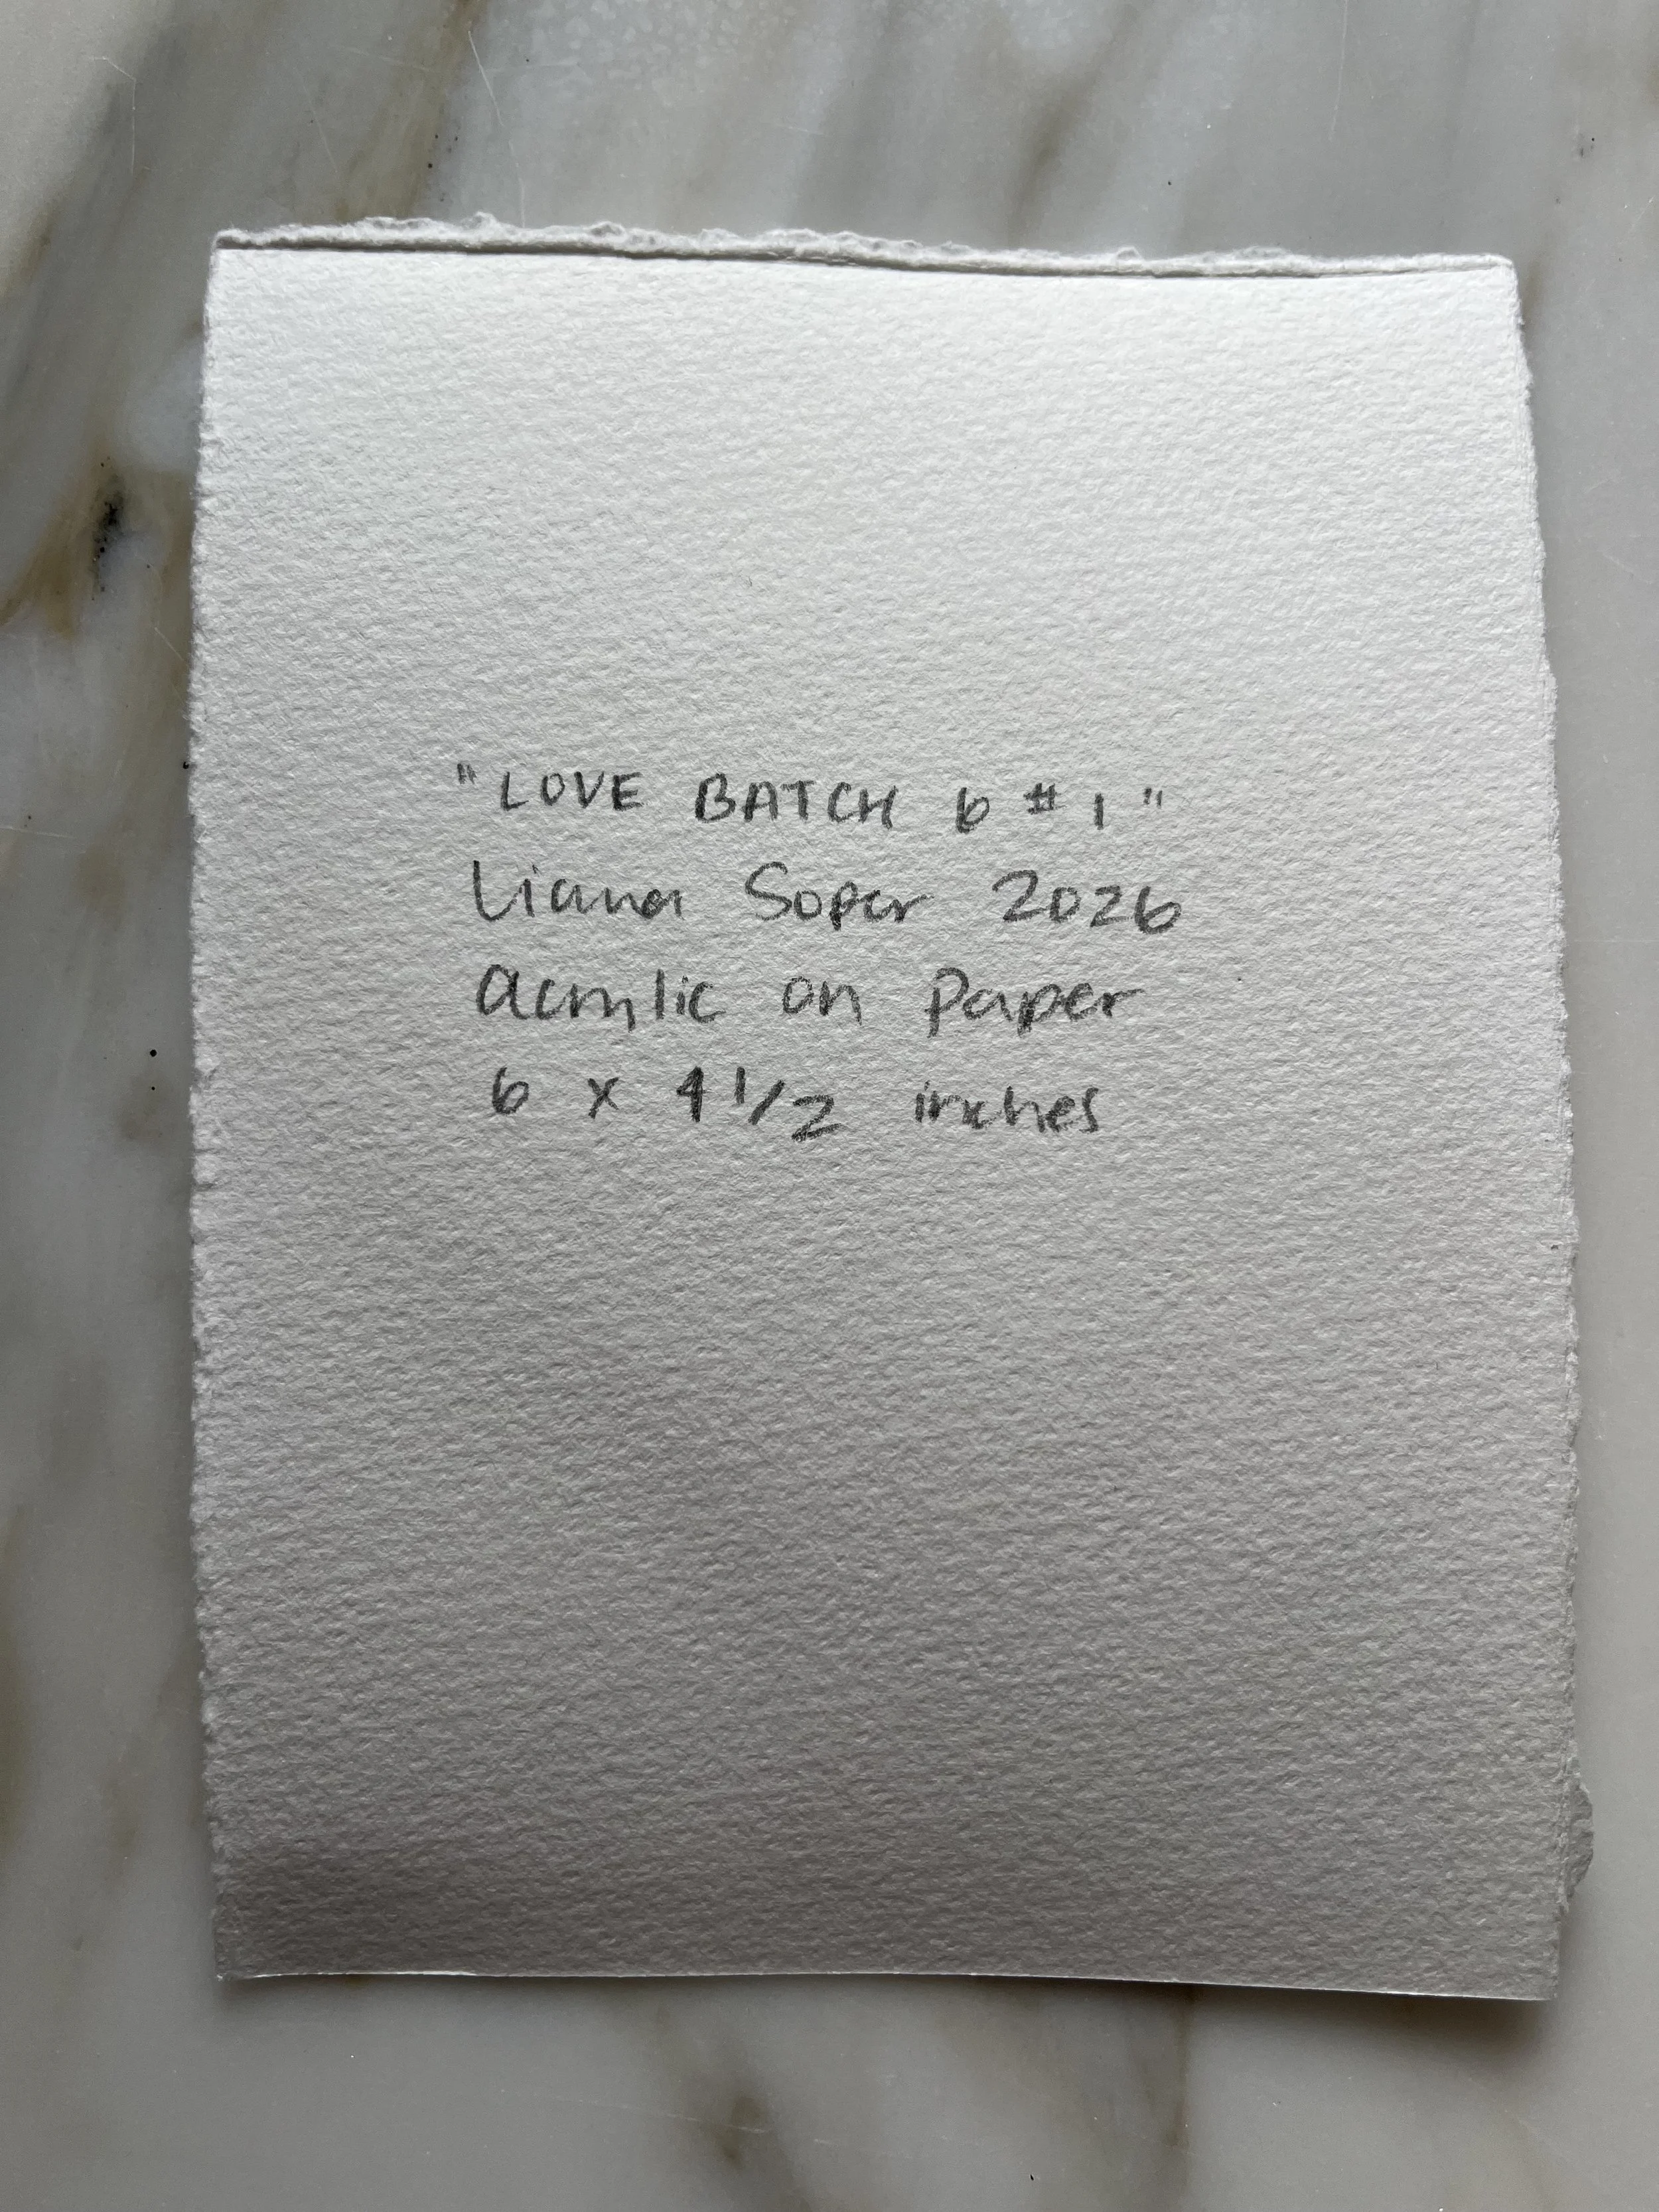 "LOVE BATCH 6 #1"
Liana Soper 2026
acrylic on paper
6 x 4 1/2 inches